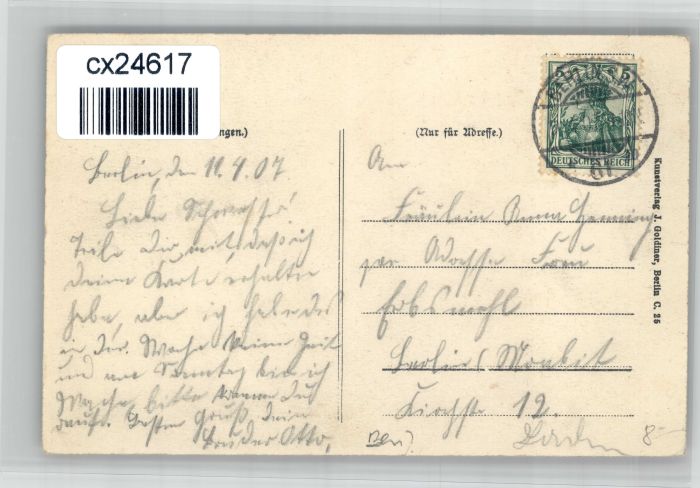 cx24617
ngen.)
(Nur für Adresse.)
DEUTSCHES REICH
07
Kunstverlag J. Goldiner, Berlin C. 25
Berlin, den 11.4.07.
Liebe Schwester!
Teile Dir mit, daß ich
deine Karte erhalten
habe, aber ich habe
in der Woche keine Zeit
und am Sonntag bin ich
Wache, bitte komme du
rauf. Besten Gruß dein
Bruder Otto.
An
Fräulein Anna Henning
per Adresse Frau
Erbsmehl
Berlin Moabit
Kirchstr 12.
Laden
8-